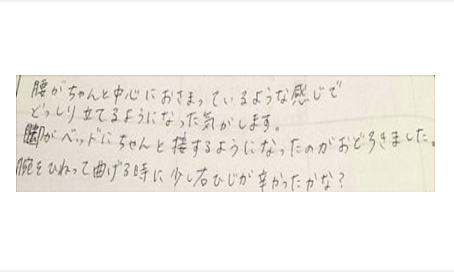 腰がちゃんと中心におさまっているような感じで
どっしり立てるようになった気がします。
脚がベッドにちゃんと接するようになったのがおどろきました。
腕をひねって曲げる時に少し右ひじが辛かったかな?